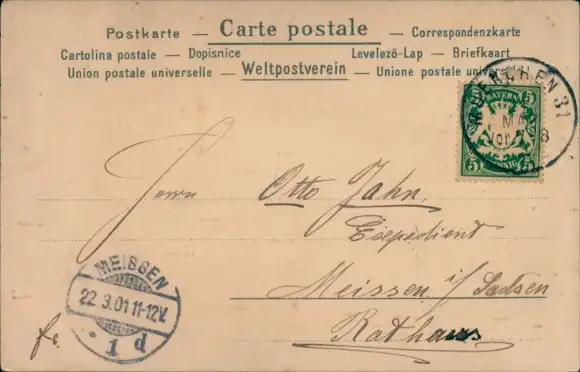 Postkarte — Carte postale — Correspondenzkarte
Cartolina postale — Dopisnice Levelező-Lap — Briefkaart
Union postale universelle — Weltpostverein — Unione postale univers
MUENCHEN 31
BAYERN
5 5
5 5
Herrn Otto Jahn,
Expedient
Meissen i/ Sachsen
Rathaus
MEISSEN
22.3.01.11-12V.
* 1 d
fr.